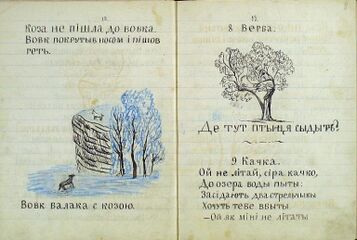 Коза не пішла до вовка.
Вовк покрутыв носом і пішов
геть.
Вовк балака с козою.
8 Верба.
Де тут птыця сыдыть?
9 Качка.
Ой не літай, сіра качко,
До озера воды пыты:
Засідають два стрельцы
Хотуть тебе вбыты
—Ой як міні не літаты